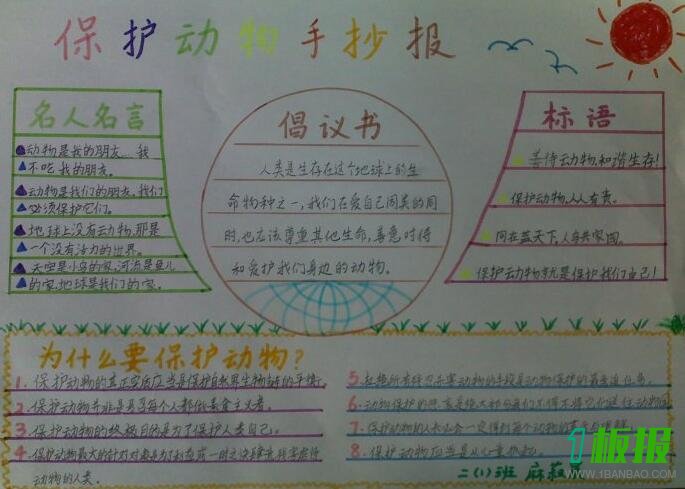 保护动物手抄报
名人名言
动物是我的朋友 我
不吃我的朋友。
动物是我们的朋友,我们
必须保护它们。
地球上没有动物,那是
一个没有活力的世界。
天空是小鸟的家,河流是鱼儿
的家,地球是我们的家。
倡议书
人类是生存在这个地球上的生
命物种之一,我们在爱自己同类的同
时,也应该尊重其他生命,善意对待
和爱护我们身边的动物。
标语
善待动物,和谐生存!
保护动物,人人有责。
同在蓝天下,人鸟共家园。
保护动物就是保护我们自己!
为什么要保护动物?
1. 保护动物的真正实质应当是保护自然界生物链的平衡
2. 保护动物并非是要每个人都做素食主义者。
3. 保护动物的终极目的是为了保护人类自己。
4 保护动物最大的针对对象是为了利益或一时之快肆意残害虐待
动物的人类。
5.
6. 动物保护的
7. 保护动物的人
8. 保护动物应当是从儿童
二(1)班 麻
1板报
WWW.1BANBAO.COM